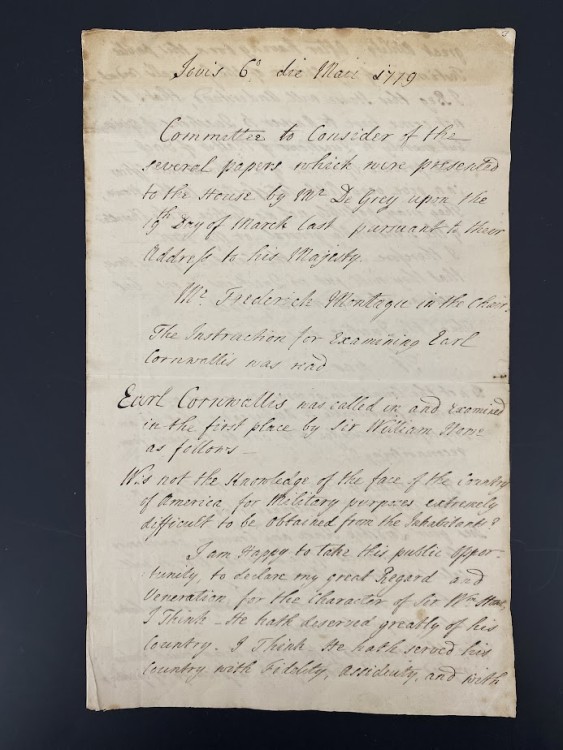 Jovis 6° die Maii 1779
Committee to Consider of the
several papers which were presented
to the House by Mr De Grey upon the
19th Day of March last pursuant to their
Address to his Majesty.
Mr Frederick Montagu in the Chair.
The Instruction for Examining Earl
Cornwallis was read
Earl Cornwallis was called in and Examined
in the first place by Sir William Howe
as follows —
Was not the Knowledge of the face of the Country
of America for Military purposes extremely
difficult to be obtained from the Inhabitants?
I am Happy to take this public Oppor-
tunity, to declare my great Regard and
Veneration for the Character of Sir Wm Howe,
I Think — He hath deserved greatly of his
Country. I Think — He hath served his
Country with Fidelity, Assiduity, and with